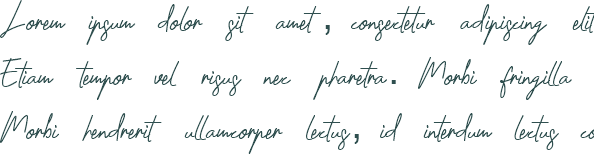 Lorem ipsum dolor sit amet, consectetur adipiscing elit
Etiam tempor vel risus nec pharetra. Morbi fringilla
Morbi hendrerit ullamcorper lectus, id interdum lectus co